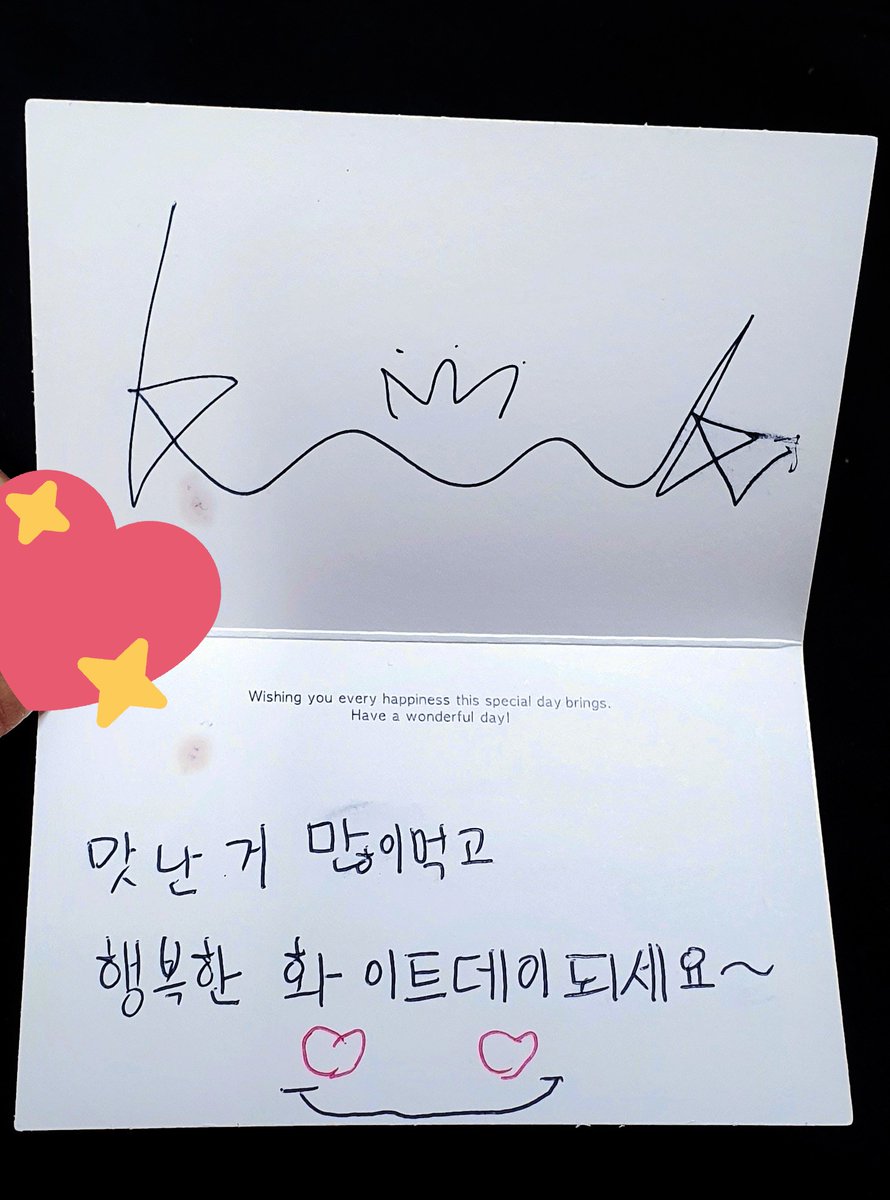 Wishing you every happiness this special day brings.
Have a wonderful day!
맛난 거 많이먹고
행복한 화이트데이 되세요~